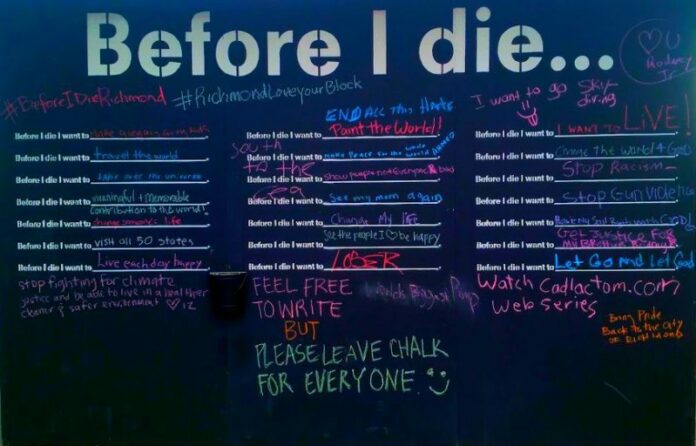 Before I die...
♡ U
Rodney
Jr
#BeforeIDieRichmond #RichmondLoveYourBlock
Before I die I want to
Before I die I want to travel the world
Before I die I want to over the universe
Before I die I want to meaningful + memorable
contribution to the world!
Before I die I want to change someone's life
Before I die I want to visit all 50 states
Before I die I want to Live each day happy
stop fighting for climate
justice and be able to live in a
cleaner & safer environment ♡ IZ
END All This Hate
Before I die I want to Paint the World!!
South
Before I die I want to make peace in the whole world
to the
Before I die I want to show people not everyone is bad
Before I die I want to See my mom again
Before I die I want to Change My life
Before I die I want to See the people I ♡ be happy
Before I die I want to LOBER
FEEL FREE
TO WRITE
BUT
PLEASE LEAVE CHALK
FOR EVERYONE.
Worlds Biggest
I want to go sky
diving
Before I die I want to I WANT TO LIVE!
Before I die I want to Change the world 4 God
Before I die I want to Stop Racism
Before I die I want to Stop Gun violence
Before I die I want to my Soul Right with GOD!
Before I die I want to Get Justice for
my Brother
Before I die I want to Let Go And Let God
Watch Cadlactom.com
Web Series
Bring Pride
Back to the City
OF RICHMOND